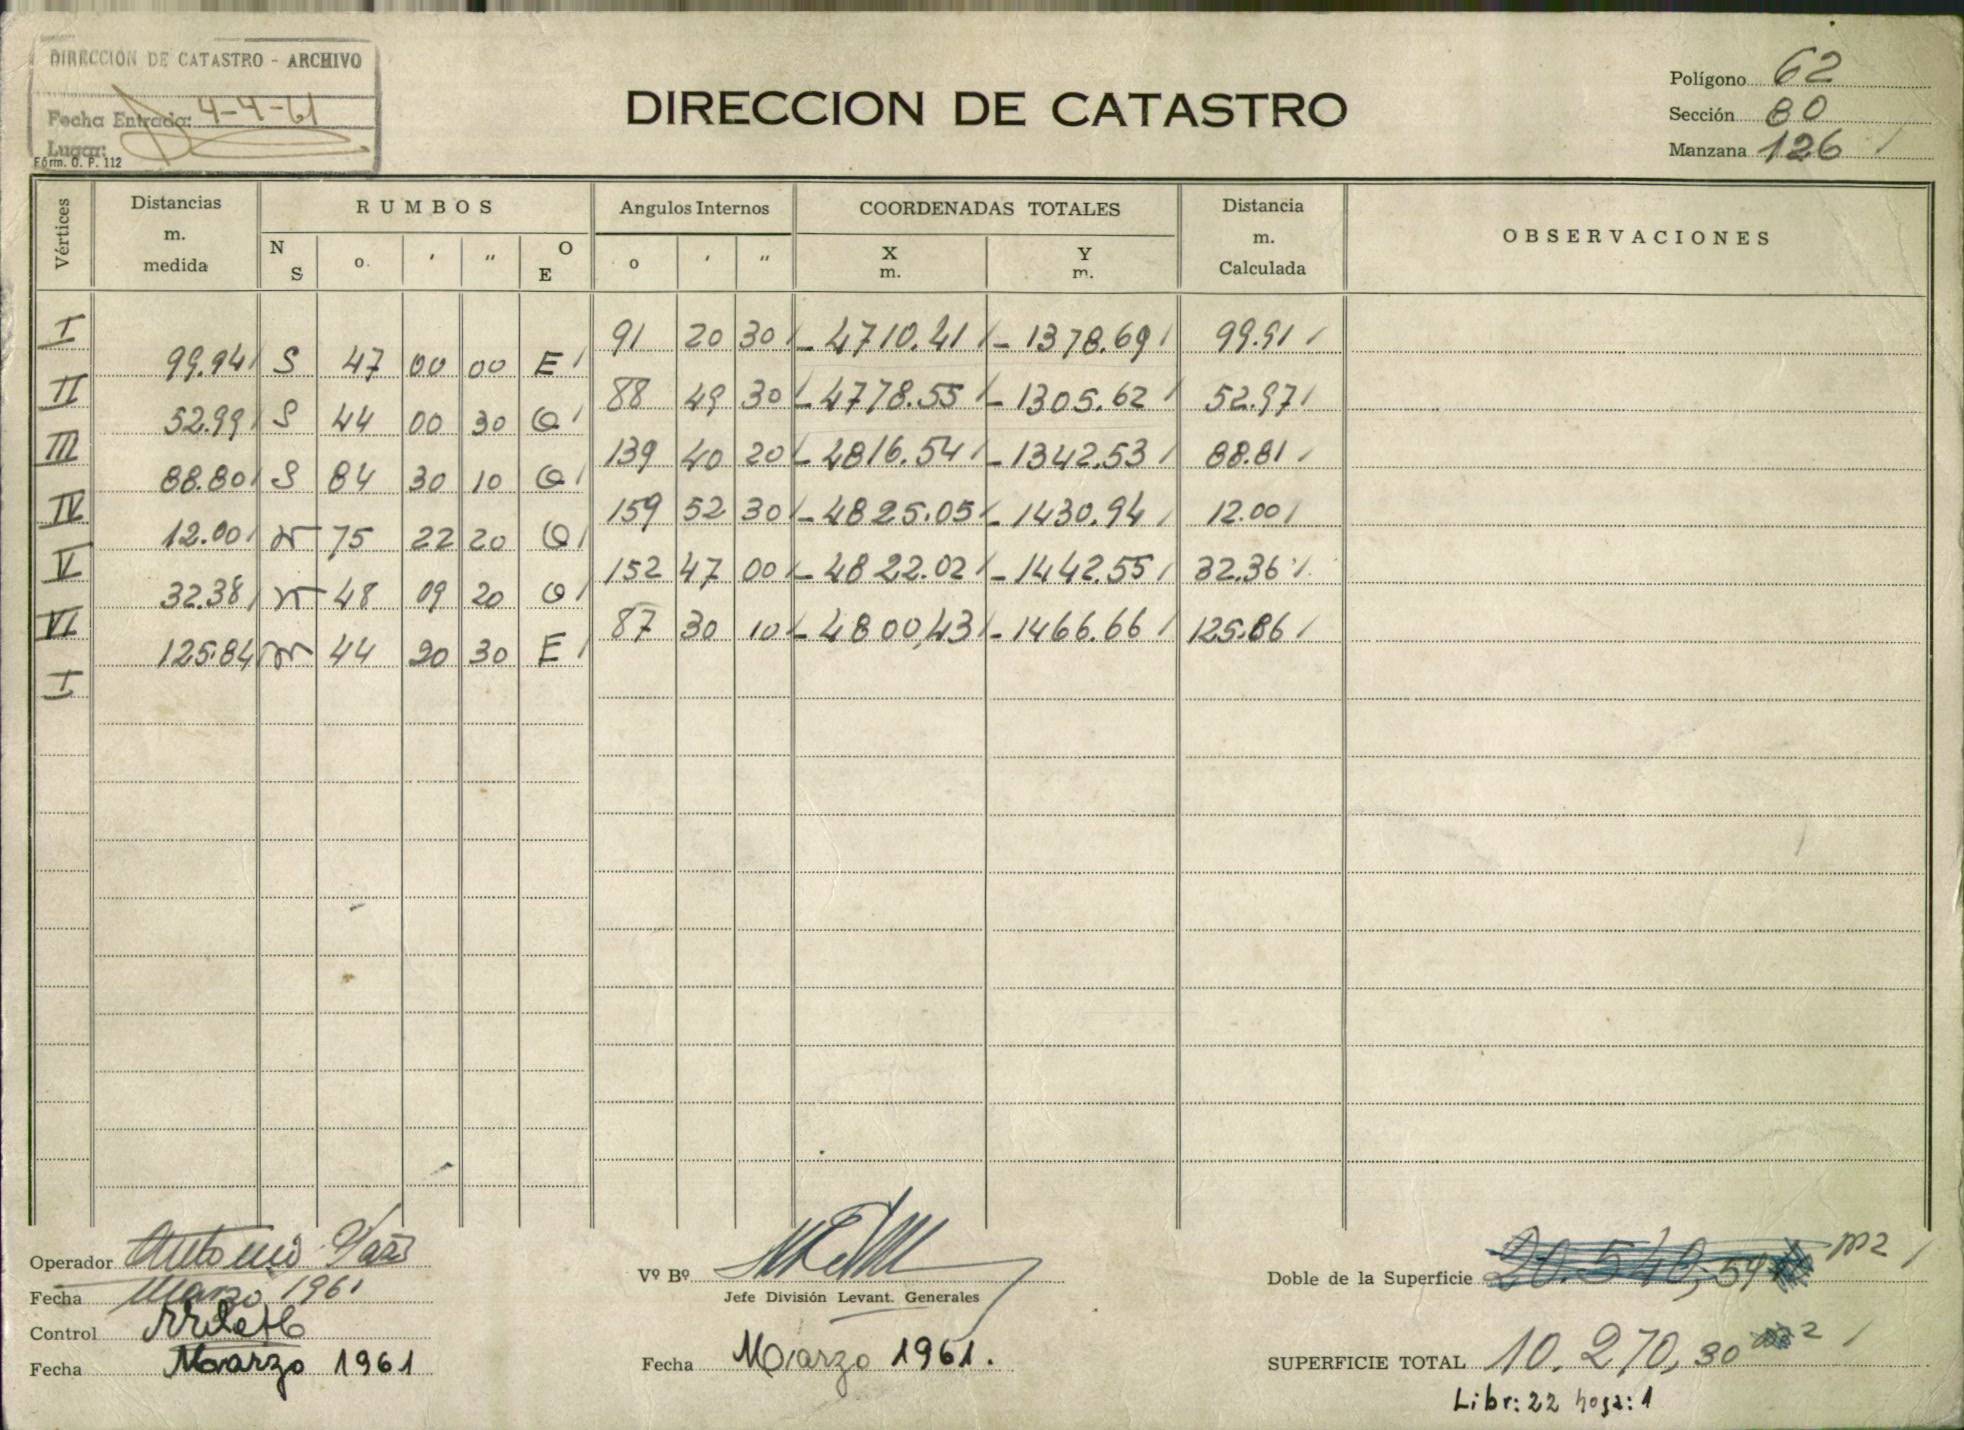 DIRECCION DE CATASTRO - ARCHIVO
Fecha Entrada: 4-4-61
Lugar:
Fórm. O. P. 112
DIRECCION DE CATASTRO
Polígono 62
Sección 80
Manzana 126 /
Vértices Distancias m. medida RUMBOS Angulos Internos COORDENADAS TOTALES Distancia m. Calculada OBSERVACIONES
N S o. ' " O E o ' " X m. Y m.
I 91 20 30 / - 4710.41 / - 1378.69 / 99.91 /
99.94 / S 47 00 00 E /
II 88 49 30 / - 4778.55 / - 1305.62 / 52.97 /
52.99 / S 44 00 30 O /
III 139 40 20 / - 4816.54 / - 1342.53 / 88.81 /
88.80 / S 84 30 10 O /
IV 159 52 30 / - 4825.05 / - 1430.94 / 12.00 /
12.00 / N 75 22 20 O /
V 152 47 00 / - 4822.02 / - 1442.55 / 32.36 /
32.38 / N 48 09 20 O /
VI 87 30 10 / - 4800,43 / - 1466.66 / 125.86 /
125.84 N 44 20 30 E /
I
Operador Antonio
Fecha Marzo 1961
Control
Fecha Marzo 1961
Vº Bº
Jefe División Levant. Generales
Fecha Marzo 1961.
Doble de la Superficie 20.540,59 m2 /
SUPERFICIE TOTAL 10.270,30 2 /
Libr: 22 hoja: 1